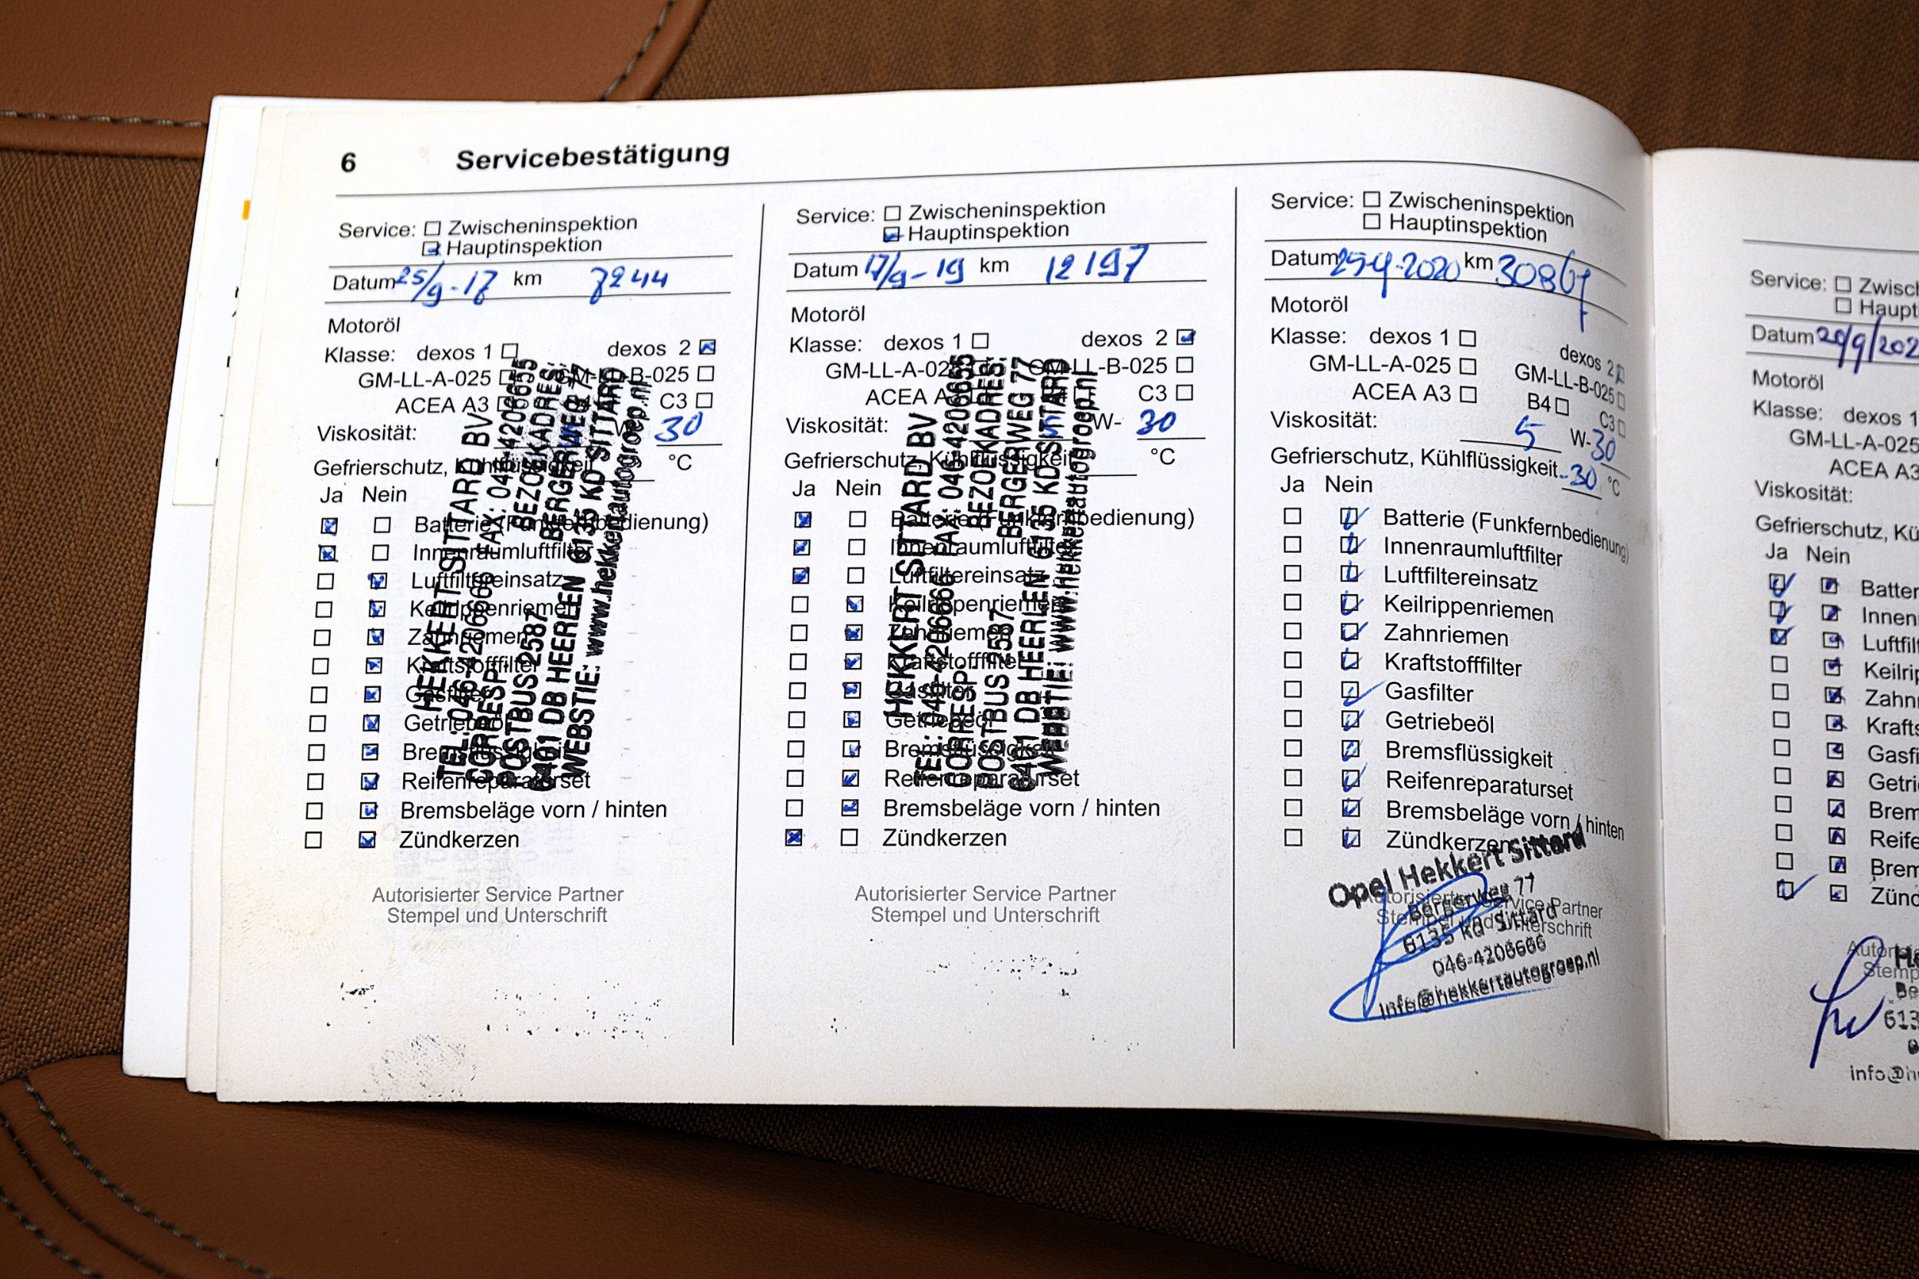 6 Servicebestätigung
Service: Zwischeninspektion
Hauptinspektion
Datum 25/9-17 km 7244
Motoröl
Klasse: dexos 1 dexos 2
GM-LL-A-025 GM-LL-B-025
ACEA A3 B4 C3
Viskosität: W- 30
Gefrierschutz, Kühlflüssigkeit °C
Ja Nein
Batterie (Funkfernbedienung)
Innenraumluftfilter
Luftfiltereinsatz
Keilrippenriemen
Zahnriemen
Kraftstofffilter
Gasfilter
Getriebeöl
Bremsflüssigkeit
Reifenreparaturset
Bremsbeläge vorn / hinten
Zündkerzen
HEKKERT SITTARD BV
TEL: 046-4206666 FAX: 046-4206655
CORRESP. BEZOEKADRES:
POSTBUS 2587 BERGERWEG 77
6401 DB HEERLEN 6135 KD SITTARD
WEBSTIE: www.hekkertautogroep.nl
Autorisierter Service Partner
Stempel und Unterschrift
Service: Zwischeninspektion
Hauptinspektion
Datum 17/9-19 km 12197
Motoröl
Klasse: dexos 1 dexos 2
GM-LL-A-025 GM-LL-B-025
ACEA A3 C3
Viskosität: 5 W- 30
Gefrierschutz, Kühlflüssigkeit °C
Ja Nein
Batterie (Funkfernbedienung)
Innenraumluftfilter
Luftfiltereinsatz
Keilrippenriemen
Zahnriemen
Kraftstofffilter
Gasfilter
Getriebeöl
Bremsflüssigkeit
Reifenreparaturset
Bremsbeläge vorn / hinten
Zündkerzen
HEKKERT SITTARD BV
TEL: 046-4206666 FAX: 046-4206655
CORRESP. BEZOEKADRES:
POSTBUS 2587 BERGERWEG 77
6401 DB HEERLEN 6135 KD SITTARD
WEBSTIE: www.hekkertautogroep.nl
Autorisierter Service Partner
Stempel und Unterschrift
Service: Zwischeninspektion
Hauptinspektion
Datum km
Motoröl
Klasse: dexos 1 dexos 2
GM-LL-A-025 GM-LL-B-025
ACEA A3 B4 C3
Viskosität: 5 W-30
Gefrierschutz, Kühlflüssigkeit -30 °C
Ja Nein
Batterie (Funkfernbedienung)
Innenraumluftfilter
Luftfiltereinsatz
Keilrippenriemen
Zahnriemen
Kraftstofffilter
Gasfilter
Getriebeöl
Bremsflüssigkeit
Reifenreparaturset
Bremsbeläge vorn / hinten
Zündkerzen
Autorisierter Service Partner
Stempel und Unterschrift
Opel Hekkert Sittard
Bergerweg 77
6135 KD Sittard
046-4206666
info@hekkertautogroep.nl
Service: Zwisc
Haupt
Datum 20/9/202
Motoröl
Klasse: dexos 1
GM-LL-A-025
ACEA A3
Viskosität:
Gefrierschutz, Kü
Ja Nein
Batter
Innen
Luftfil
Keilrip
Zahn
Krafts
Gasfi
Getri
Brem
Reife
Brem
Zünd
Autor
Stemp
He
Be
613
0
info@h